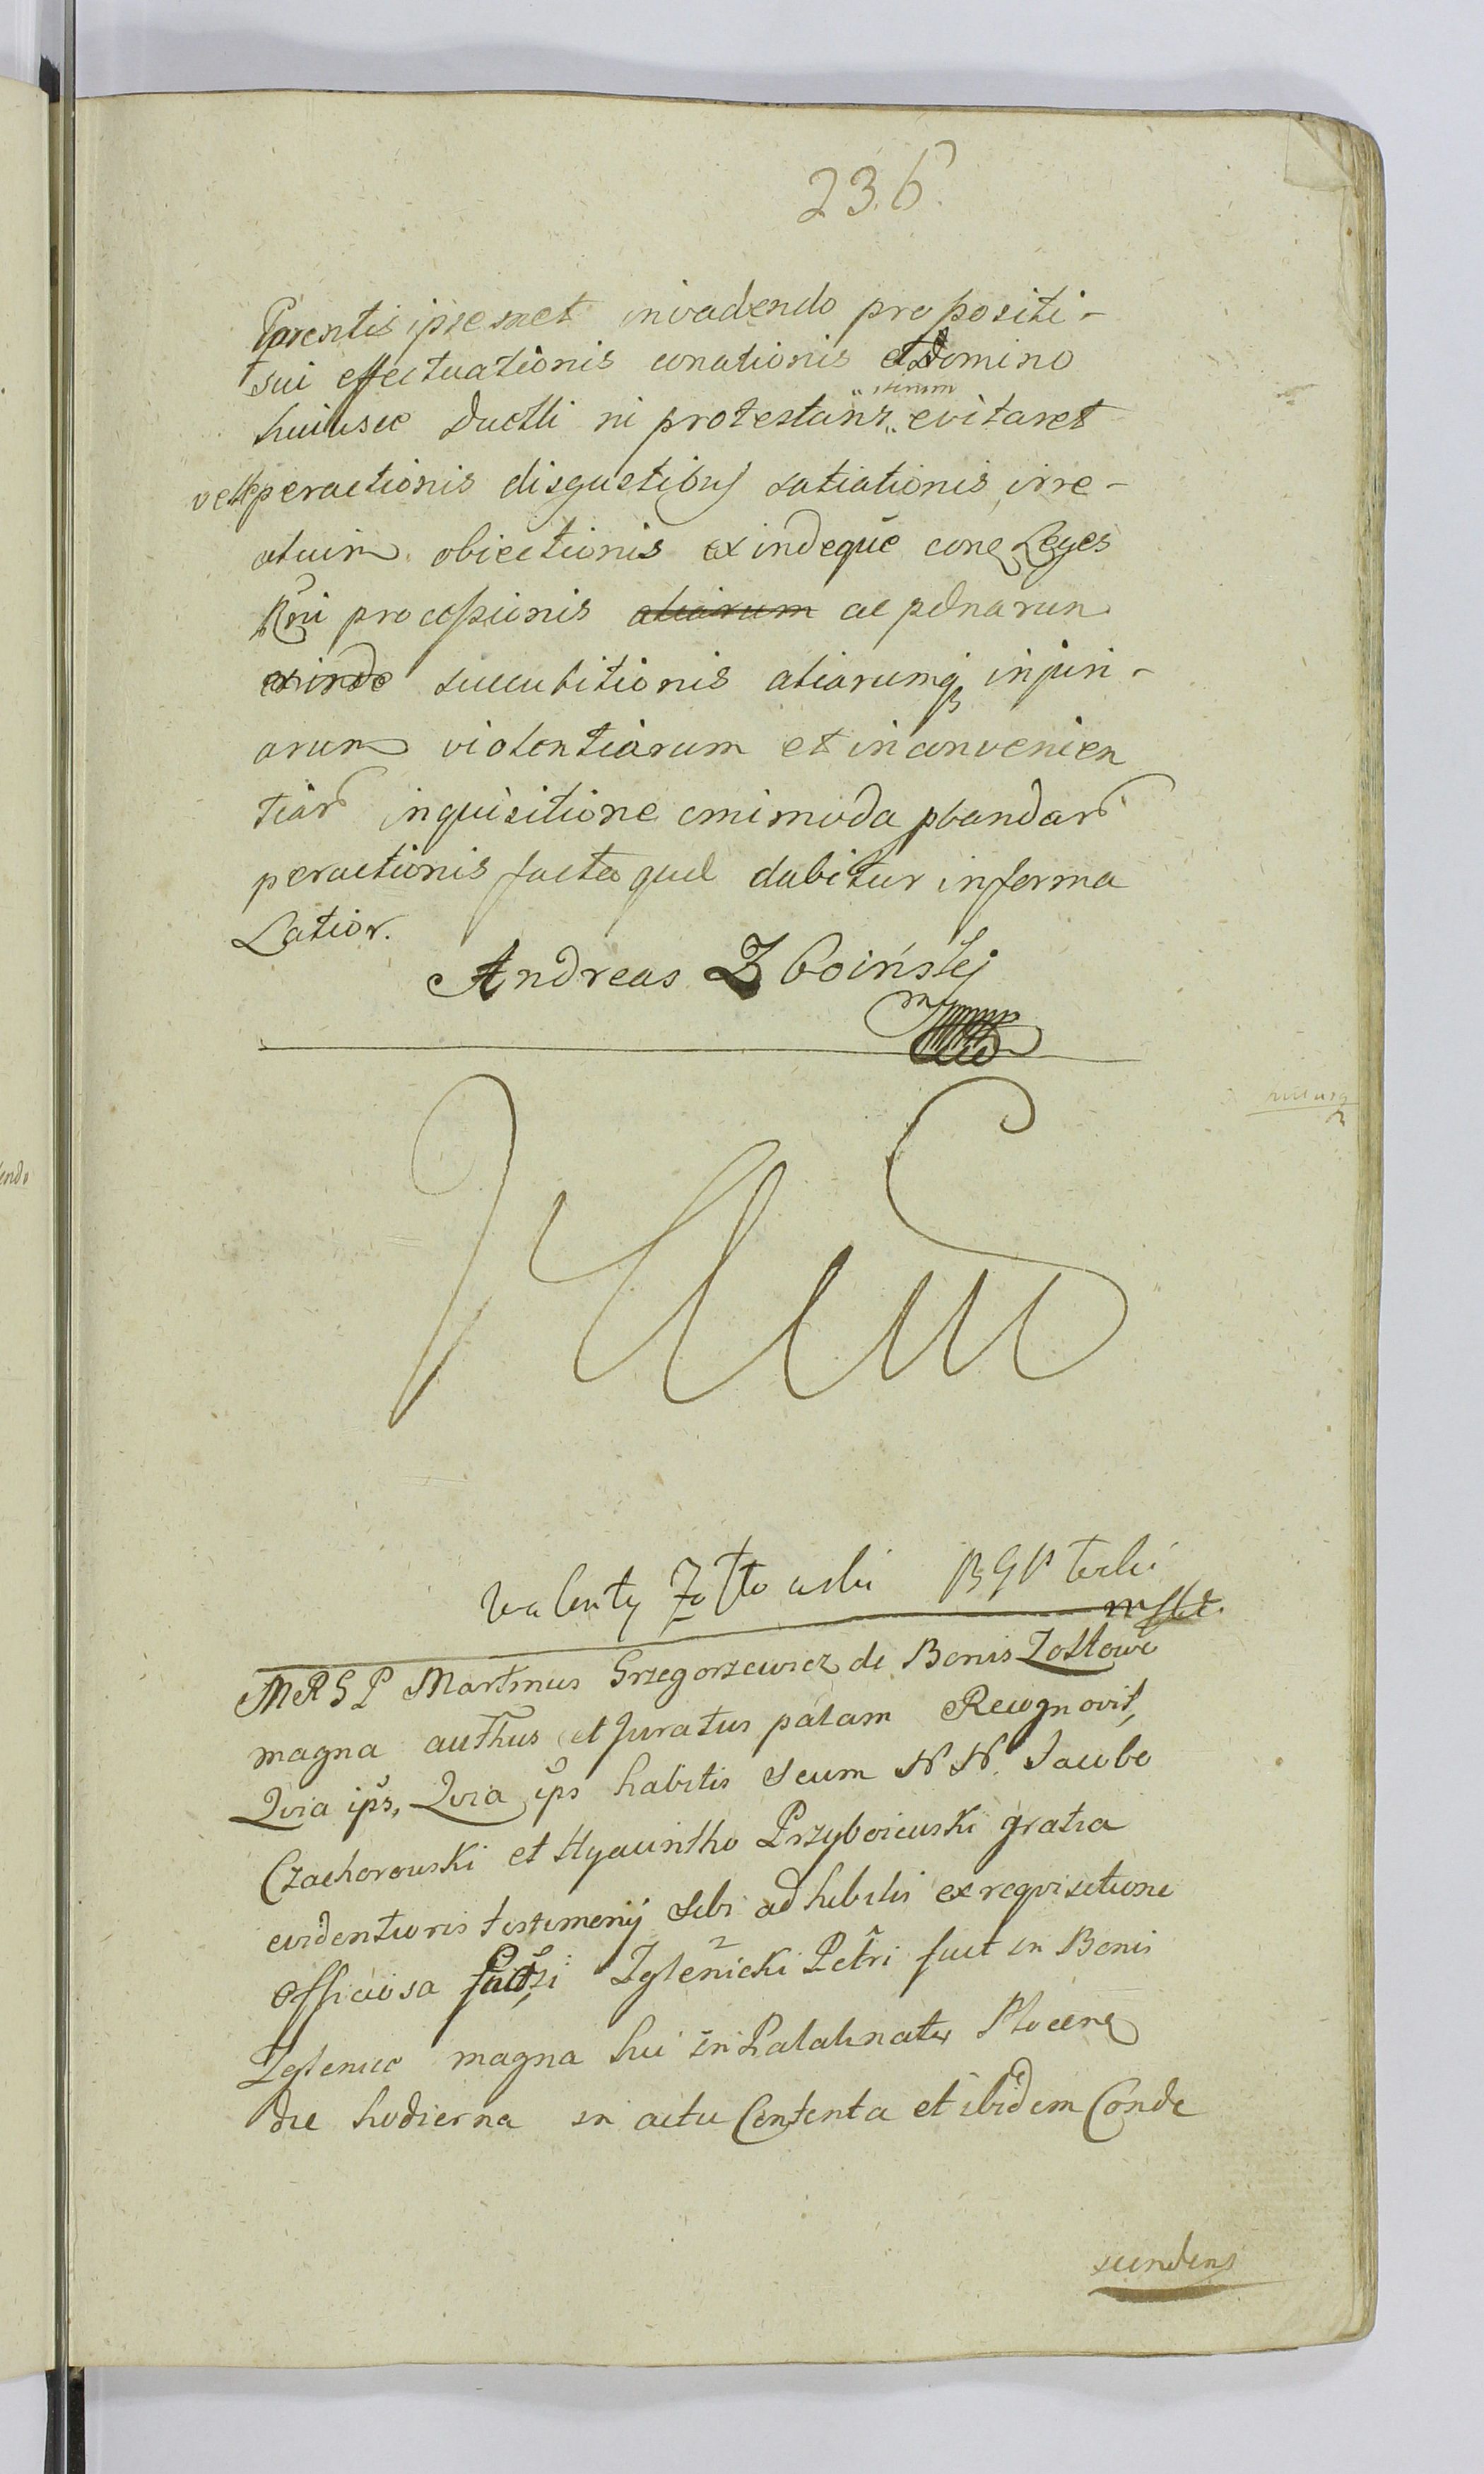 236.
Parentis ipsemet invadendo propositi-
sui effectuationis conationis et Domino
huiusce Duelli ni protestans evitaret
velle peractionis disgustibus satiationis irre-
atum obiectionis exindeque conc Leges
Rni processionis aliarum ac penarum
exinde succubitionis aliarumq injuri-
arum violentiarum et inconvenien
tiar inquisitione omimoda pbandar
peractionis facta quae dabitur in forma
Latior.
Andreas Zboiński
Walenty Żółtowski BGP
MRGP Martinus Grzegorzewicz de Bonis Zołtowo
magna authus et Juratus palam Recognovit,
Quia ips, Quia ips habitis Secum NN. Jacobo
Czachorowski et Hyacintho Przyboiewski gratia
evidentioris testimonij sibi adhibitis ex requisitione
officiosa Zglenicki Petri fuit in Bonis
Zglenice magna hic in Palatinatu Plocens
die hodierna in actu Contenta et ibidem Conde
scendens